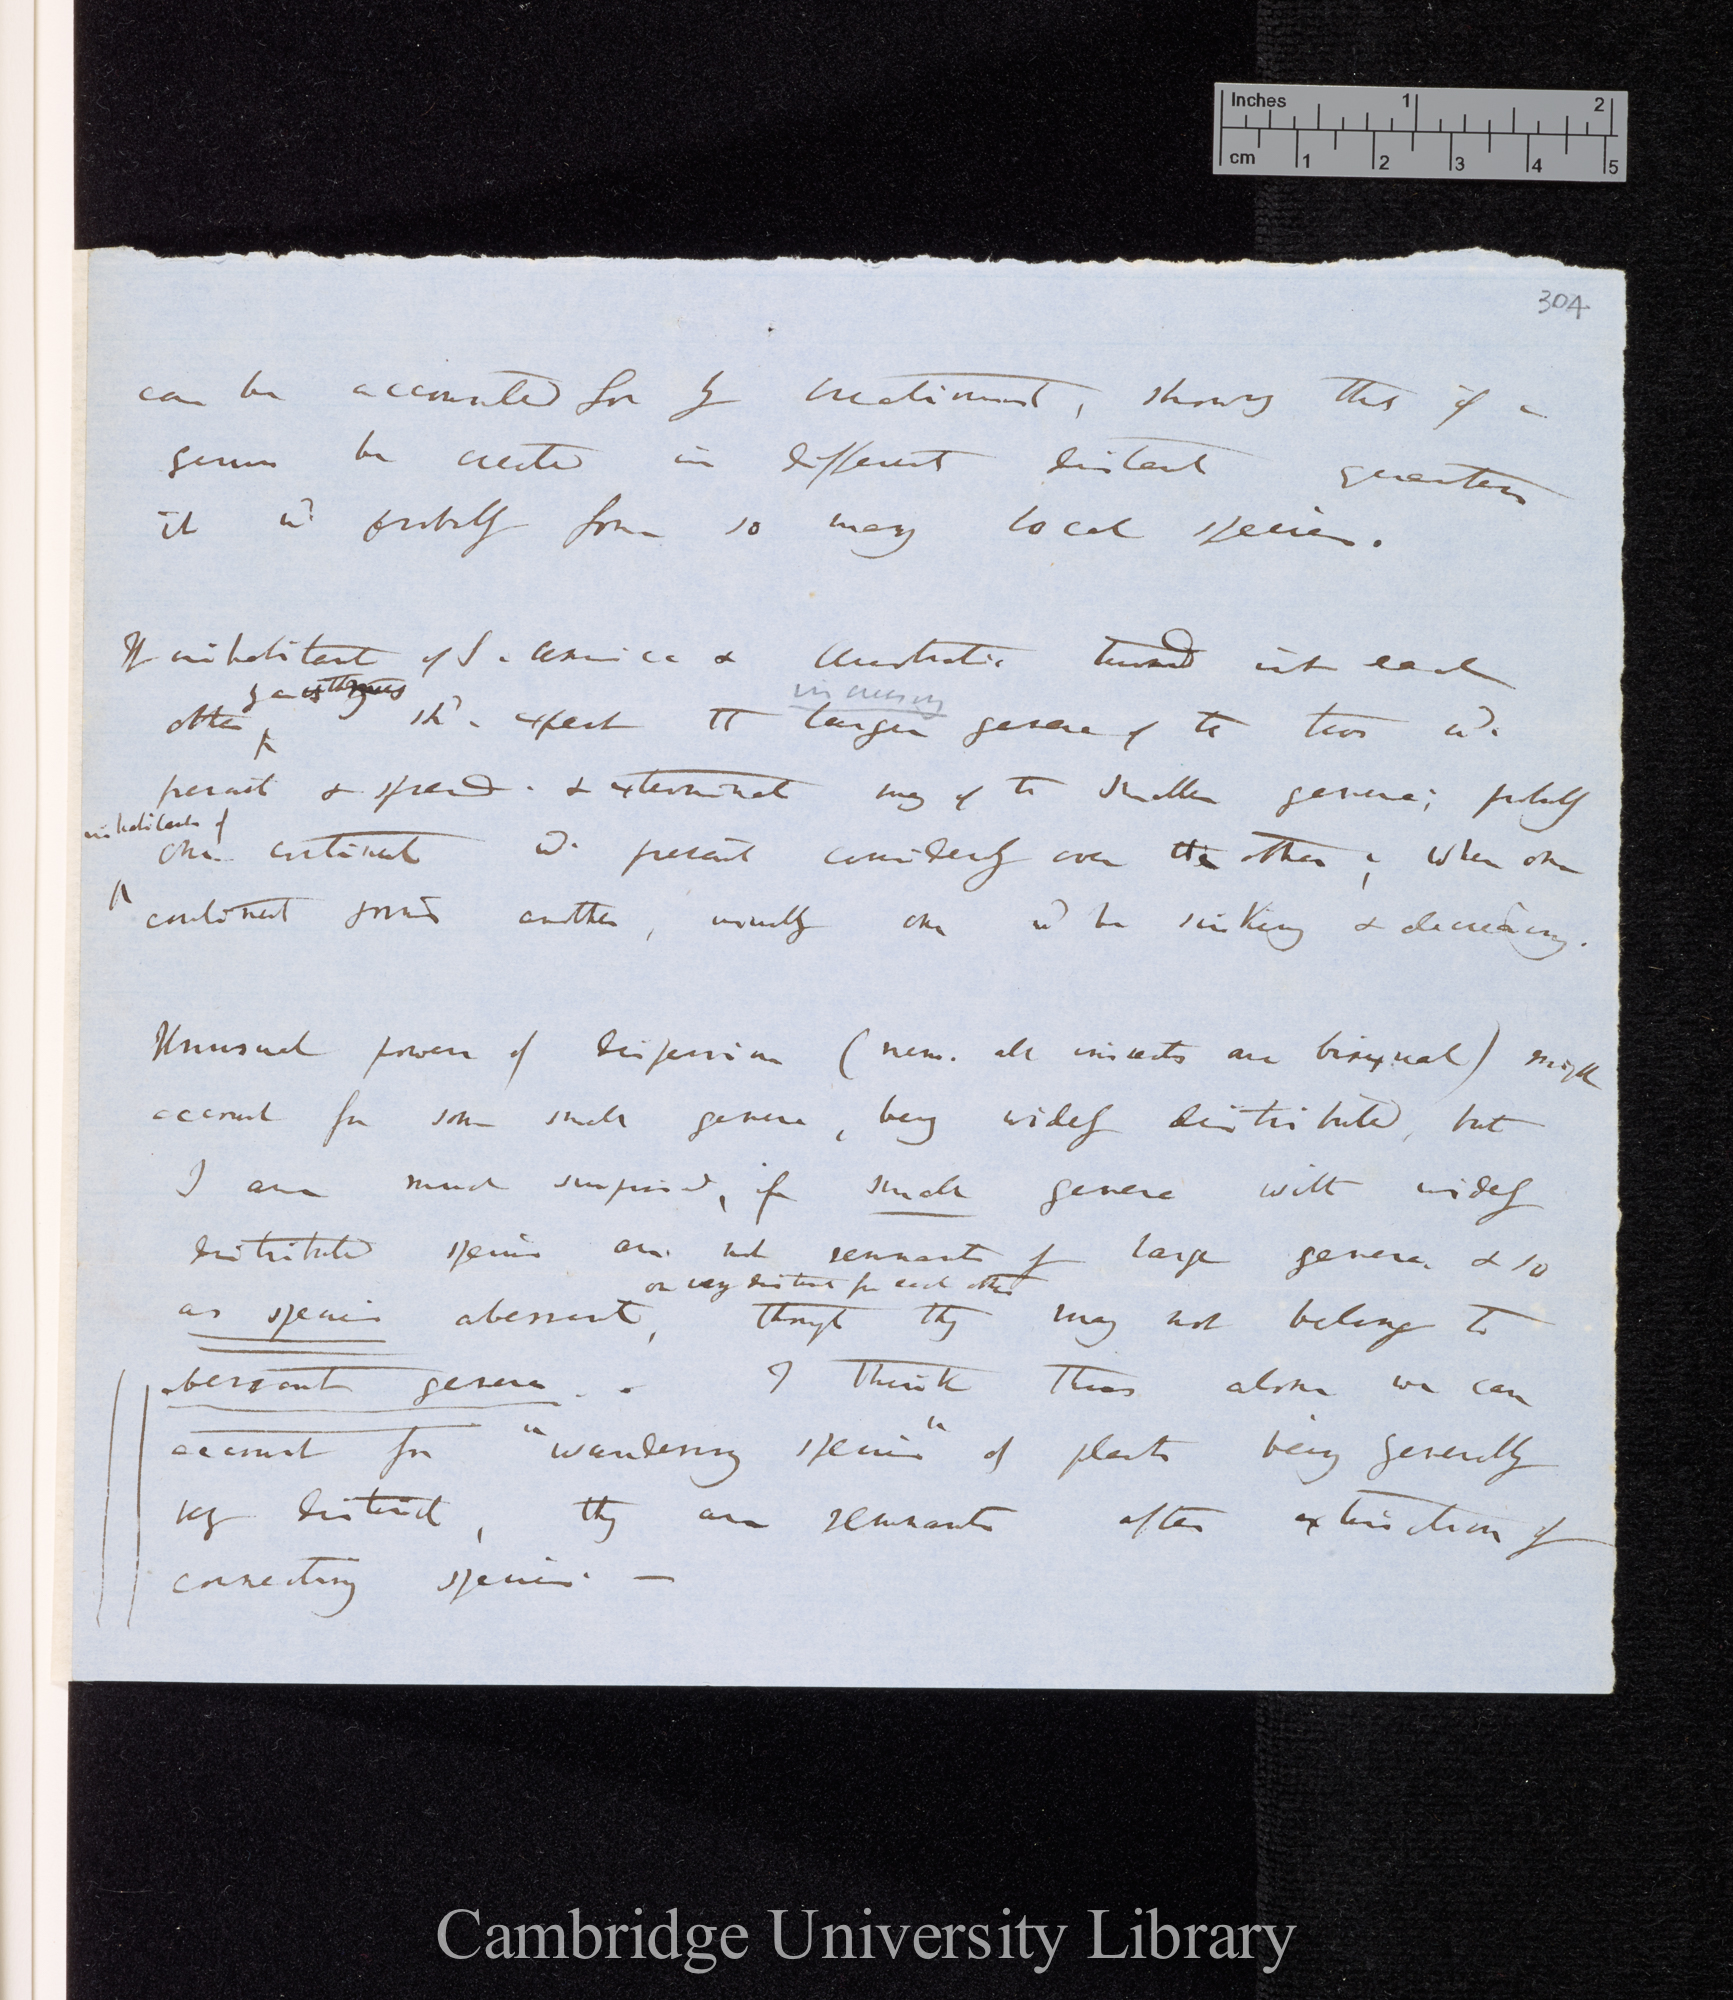 Inches 1 2
cm 1 2 3 4 5
304
can be accounted for by creationist, shows that if a
genus be created in different distant quarters
it wd probably form so many local species.
If inhabitant of S. America & Australia turned into each
other, shd. expect the larger genera of the two wd.
increasing
prevail & spread. & exterminate many of the smaller genera; probably
inhabitants of
one continent wd. prevail considerably over the other; when one
continent joined another, usually one wd be sinking & decreasing.
Unusual powers of dispersion (nem. all insects are bisexual) might
account for some small genera, being widely distributed, but
I am much surprised, if small genera with widely
distributed species are not remnants of large genera & so
or very distant fr each other
as species aberrant, though they may not belong to
aberrant genera. . I think thus alone we can
account for "wandering species" of plants being generally
very distinct, they are remnants after extinction of
connecting species. —
Cambridge University Library